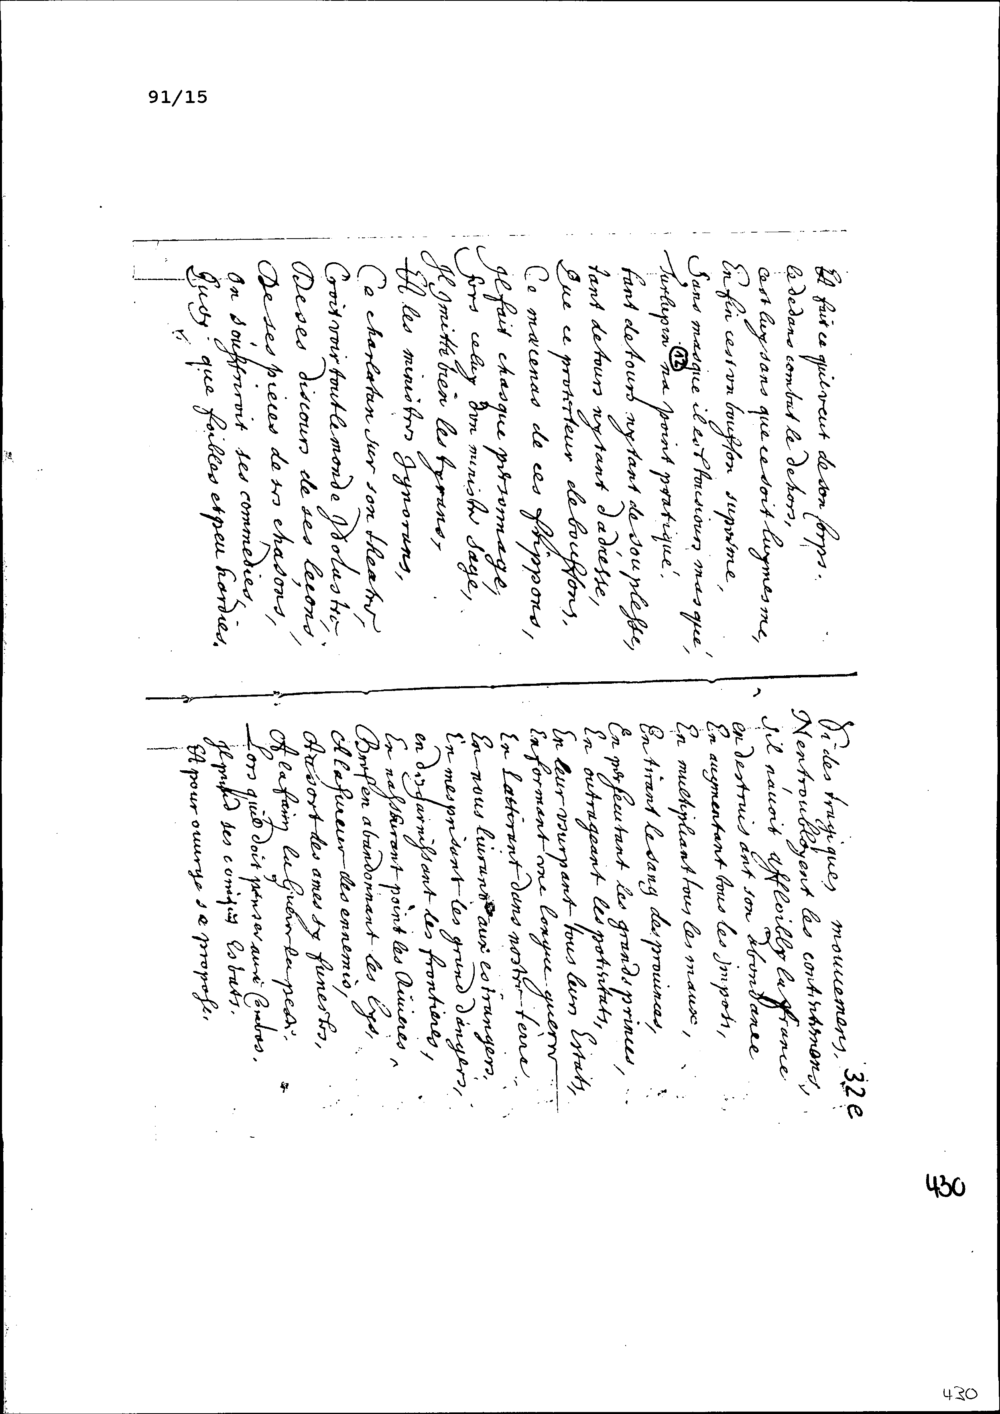 91/15
Il fait ce qu'il veut de son Corps.
le dedans combat le dehors,
cest luy sans que ce soit luymesme,
Enfin cest vn bouffon supreme,
Sans masque il est tousiours masqué,
Turlupin na point pratiqué.
12
tant detours nytant de souplesse,
tant detours nytant dadresse,
Que ce protecteur de bouffons,
Ce mecenas de ces frippons,
Il fait chasque personnage,
fors celuy dvn ministre sage,
Il imitte bien les tyrans,
Et les ministres Ignorans,
Ce charlatan sur son theatre,
Croit voir tout le monde Idolastre,
De ses discours de ses lecons,
De ses pieces de ses chasons,
On souffriroit ses commedies,
Quoy que foibles et peu hardies.
32e
Si des tragiques mouuemens.
Nentroubloyent les contentemens,
Sil nauoit affloibly la france
en destruisant son abondance
En augmentant tous les Impots,
En multipliant tous les maux,
En tirant le sang des prouinces,
En persecutant les grands princes,
En outrageant les potentats,
En leur vsurpant tous leurs Estats,
En formant vne longue guerre
En lattirant dans nostre terre
En nous liurant aux estrangers.
En mesprisant les grand dangers,
en disgarnissant les frontieres,
En nasseurant point les Riuieres
Bref en abandonnant les lys,
A la fureur des ennemis,
Au sort des armes funestes,
A la faim la Guerre la peste.
Lors quil doit penser aux Combas,
Il prend ses comiques Esbats.
Et pour ouurage se propose,
430
430